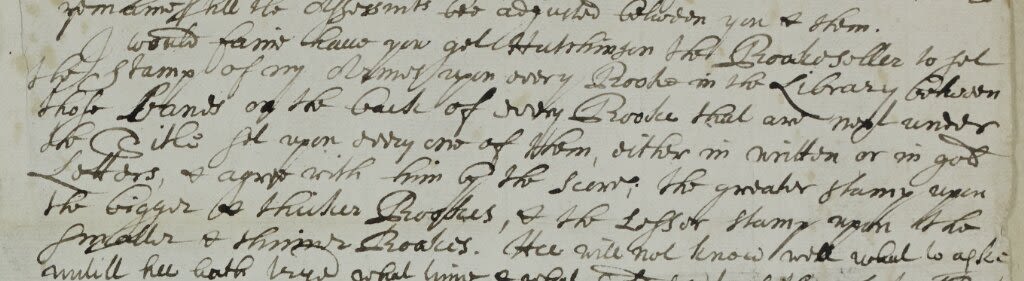 remaines till the Assessmts bee adjusted between you & them.
I would faine have you get Hutchinson the Bookeseller to set
the stamp of my Armes upon every Booke in the Library between
those Bands on the back of every Booke that are next under
the Title set upon every one of them, either in written or in gold
Letters, & agree with him by the score; the greater stamp upon
the bigger & thicker Bookes, & the Lesser stamp upon the
smaller & thinner Bookes. Hee will not know well what to aske
untill hee hath tryed what time & what